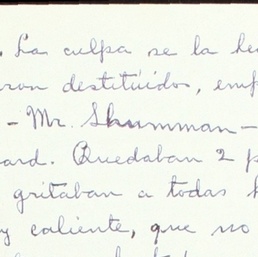 . La culpa se la he
ron destituídos, em
- Mr. Shumman -
ard. Quedaban 2 p
gritaban a todas h
y caliente, que no